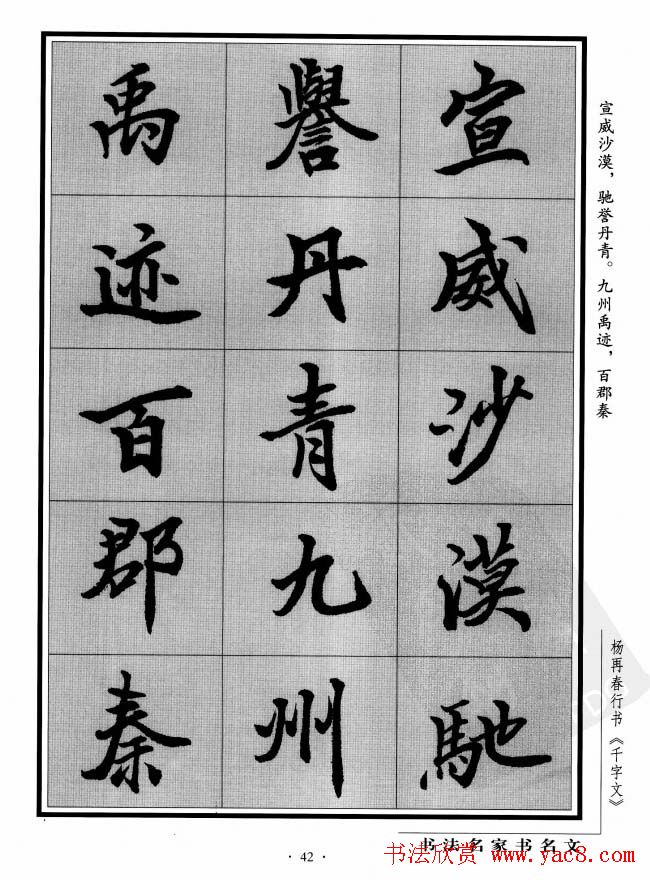 宣威沙漠馳
譽丹青九州
禹迹百郡秦
宣威沙漠，驰誉丹青。九州禹迹，百郡秦
杨再春行书《千字文》
书法名家书名文
· 42 ·
书法欣赏 www.yac8.com